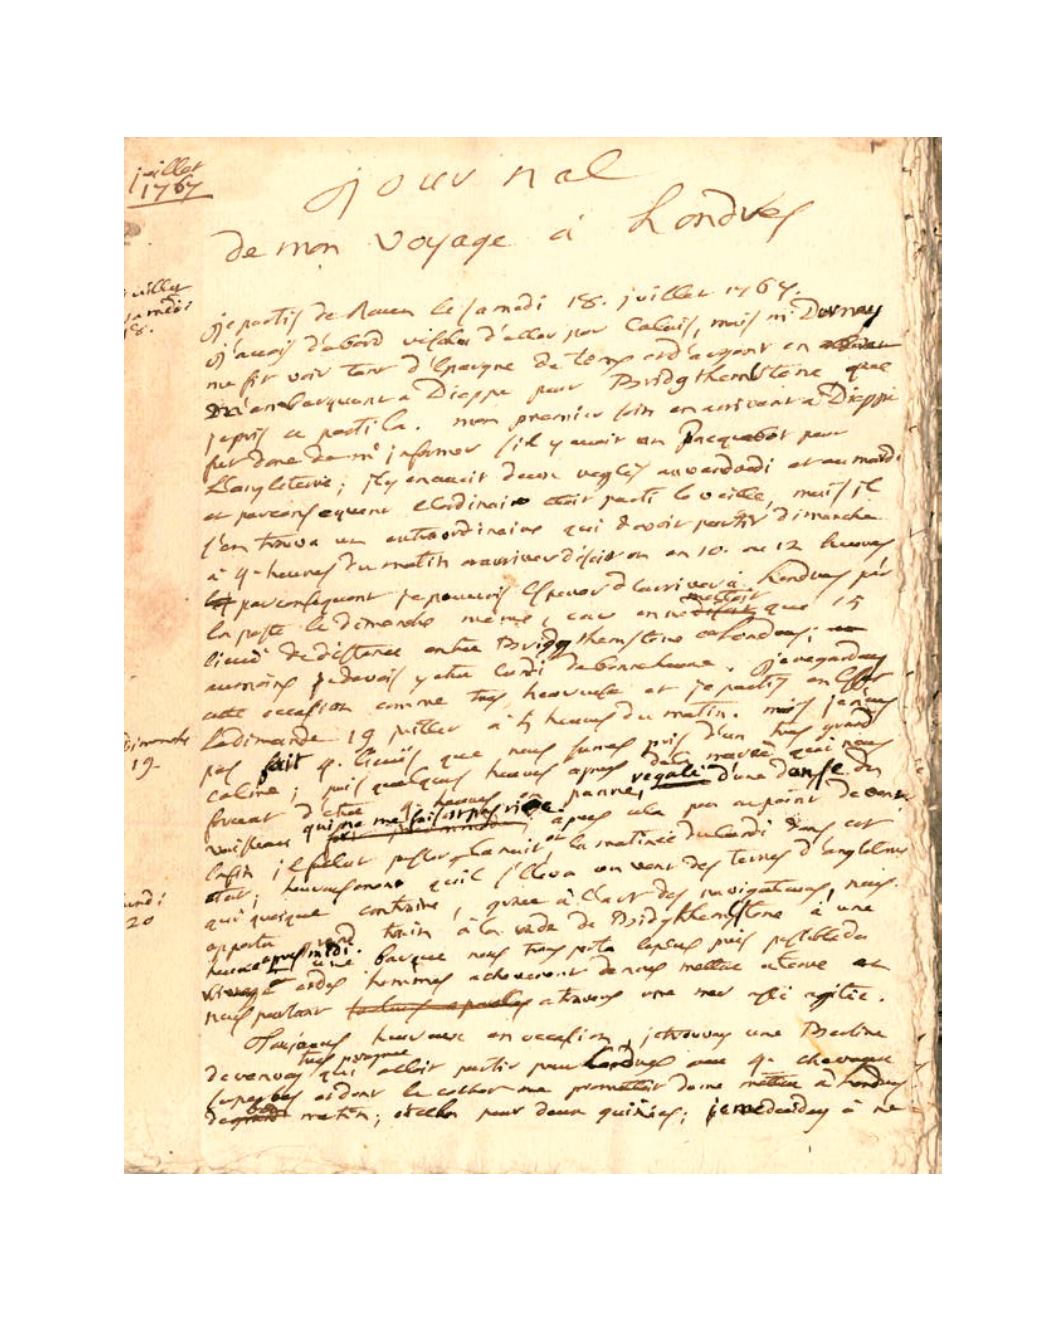 juillet
1767
journal
de mon voyage à Londres
juillet
samedi
18.
je partis de Rouen le samedi 18. juillet 1767.
j'avois d'abord résolu d'aller par Calais, mais mr Dornay
me fit voir tant d'épargne de temps et d'argent en
m'embarquant a Dieppe pour Bridgthemstone que
je pris ce parti la. mon premier soin en arrivant a Dieppe
fut donc de m'informer s'il y avoit un pacquebot pour
L'angleterre; il y en avoit deux reglés au vendredi et au mardi
et par consequent L'ordinaire etoit parti la veille, mais il
s'en trouva un extraordinaire qui devoit partir dimanche
à 4 heures du matin arriver disoit on en 10. ou 12 heures
par consequent je pouvois esperer d'arriver à Londres par
la poste le dimanche même, car on ne mettoit que 15
lieues de distance entre Bridgthemstone et Londres;
aumoins je devois y etre lundi de bonne heure. je regardois
cette occasion comme tres heureuse et je partis en effet
dimanche
19.
Le dimanche 19 juillet à 5 heures du matin. mais je n'eus
pas fait 4. lieües que nous fumes pris d'un tres grand
calme; puis quelques heures apres de la marée qui nous
forceat d'etre 4. heures en panne, regalé d'une danse du
vaisseau qui ne me faisoit pas rire. apres cela pas un point de vent
enfin il fallut passer la nuit, et la matinée du lundi dans cet
lundi
20
etat; heureusement qu'il s'eleva un vent des terres d'angleterre
qui quoique contraire, grace à L'art des navigateurs, nous
apporta grand train à la rade de Bridgthemstone à une
heure apres midi. une barque nous transporta le plus pres possible du
rivage et des hommes acheverent de nous mettre a terre en
nous portant a travers une mer assé agitée.
Toujours heureux en occasion, je trouvay une Berline
de renvoy tres propre qui alloit partir pour Londres avec 4. chevaux
superbes et dont le cocher me promettoit de me mettre à Londres
de bon matin; et cela pour deux guinées; je me deciday à ne